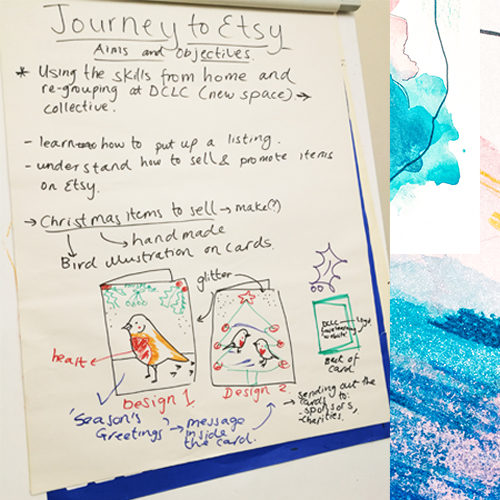 Journey to Etsy
Aims and Objectives.
* Using the skills from home and
re-grouping at DCLC (new space) →
collective.
- learn how to put up a listing.
- understand how to sell & promote items
on Etsy.
→ Christmas items to sell → make(?)
handmade
Bird illustration on cards.
glitter
heart
DCLC
Back of
card
Design 1
Design 2
'Season's
Greetings' → message
inside
the card.
→ sending out the
cards to:
- sponsors,
- charities.